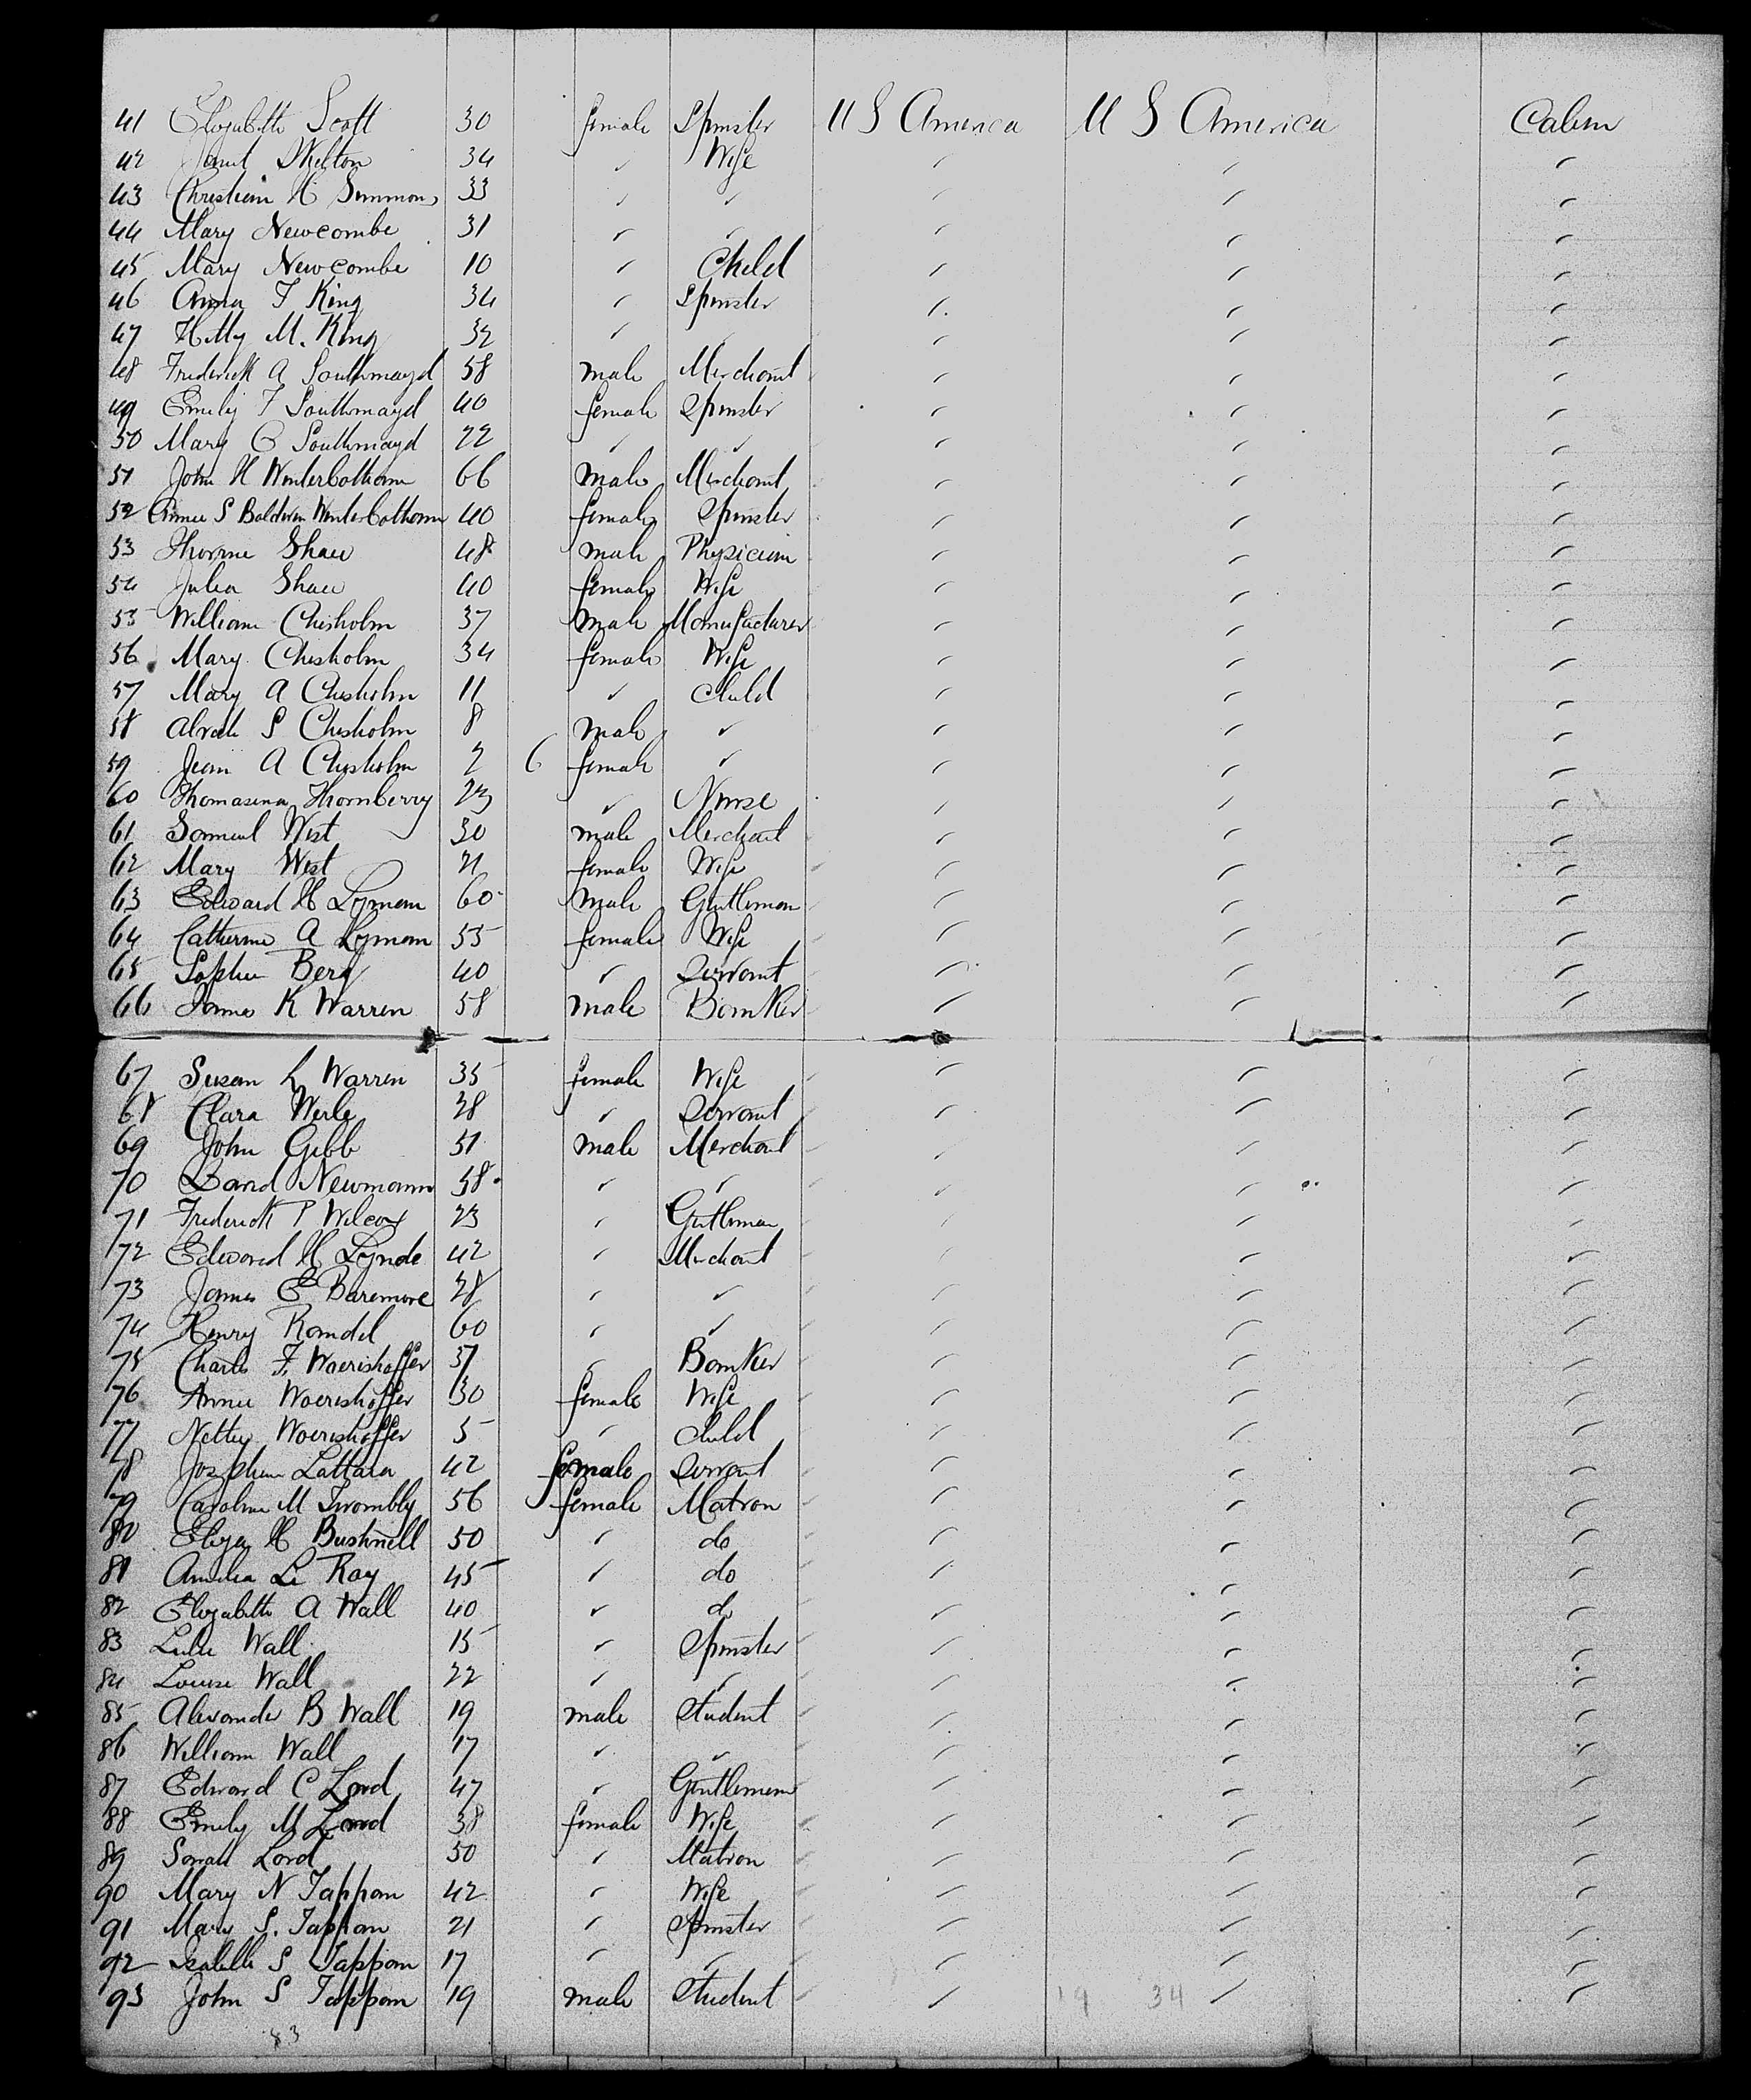 41 Elizabeth Scott 30 female Spinster U S America U S America Cabin
42 Janet Skelton 34 " Wife " " "
43 Christian H Simmons 33 " " " " "
44 Mary Newcombe 31 " " " " "
45 Mary Newcombe 10 " Child " " "
46 Anna F King 34 " Spinster " " "
47 Hetty M. King 32 " " " " "
48 Frederick A Southmayd 58 male Merchant " " "
49 Emily F Southmayd 40 female Spinster " " "
50 Mary C Southmayd 22 " " " " "
51 John H Winterbotham 66 male Merchant " " "
52 Annie S Baldwin Winterbotham 40 female Spinster " " "
53 Thorne Shaw 48 male Physician " " "
54 Julia Shaw 40 female Wife " " "
55 William Chisholm 37 male Manufacturer " " "
56 Mary Chisholm 34 female Wife " " "
57 Mary A Chisholm 11 " Child " " "
58 Alvah S Chisholm 8 male " " " "
59 Jean A Chisholm 2 6 female " " " "
60 Thomasina Thornberry 23 " Nurse " " "
61 Samuel West 30 male Merchant " " "
62 Mary West 21 female Wife " " "
63 Edward H Lyman 60 male Gentleman " " "
64 Catherine A Lyman 55 female Wife " " "
65 Sophie Berg 40 " Servant " " "
66 James K Warren 58 male Banker " " "
67 Susan L Warren 35 female Wife " " "
68 Clara Werle 28 " Servant " " "
69 John Gibb 51 male Merchant " " "
70 David Newmann 58 " " " " "
71 Frederick P Wilcox 23 " Gentleman " " "
72 Edward H Lynde 42 " Merchant " " "
73 James E Baremore 28 " " " " "
74 Henry Randel 60 " " " " "
75 Charles F. Woerishoffer 37 " Banker " " "
76 Annie Woerishoffer 30 female Wife " " "
77 Netty Woerishoffer 5 " Child " " "
78 Josephine Lattara 42 female Servant " " "
79 Caroline M Twombly 56 female Matron " " "
80 Eliza H Bushnell 50 " do " " "
81 Amelia Le Ray 45 " do " " "
82 Elizabeth A Wall 40 " do " " "
83 Lulie Wall 15 " Spinster " " "
84 Louise Wall 22 " " " " "
85 Alexander B Wall 19 male Student " " "
86 William Wall 17 " " " " "
87 Edward C Lord 47 " Gentleman " " "
88 Emily M Lord 38 female Wife " " "
89 Sarah Lord 50 " Matron " " "
90 Mary N Tappan 42 " Wife " " "
91 Mary S. Tappan 21 " Spinster " " "
92 Isabelle S Tappan 17 " " " " "
93 John S Tappan 19 male Student " 19 34 " "
83